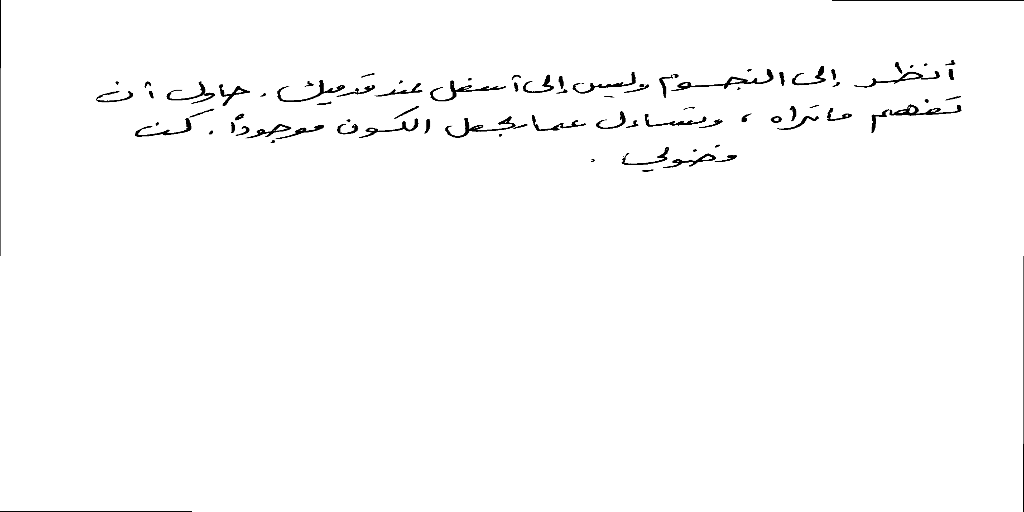 أنظر إلى النجوم وليس إلى أسفل عند قدميك . حاول أن
تفهم ما تراه ، وتساءل عما يجعل الكون موجوداً . كن
فضولي .